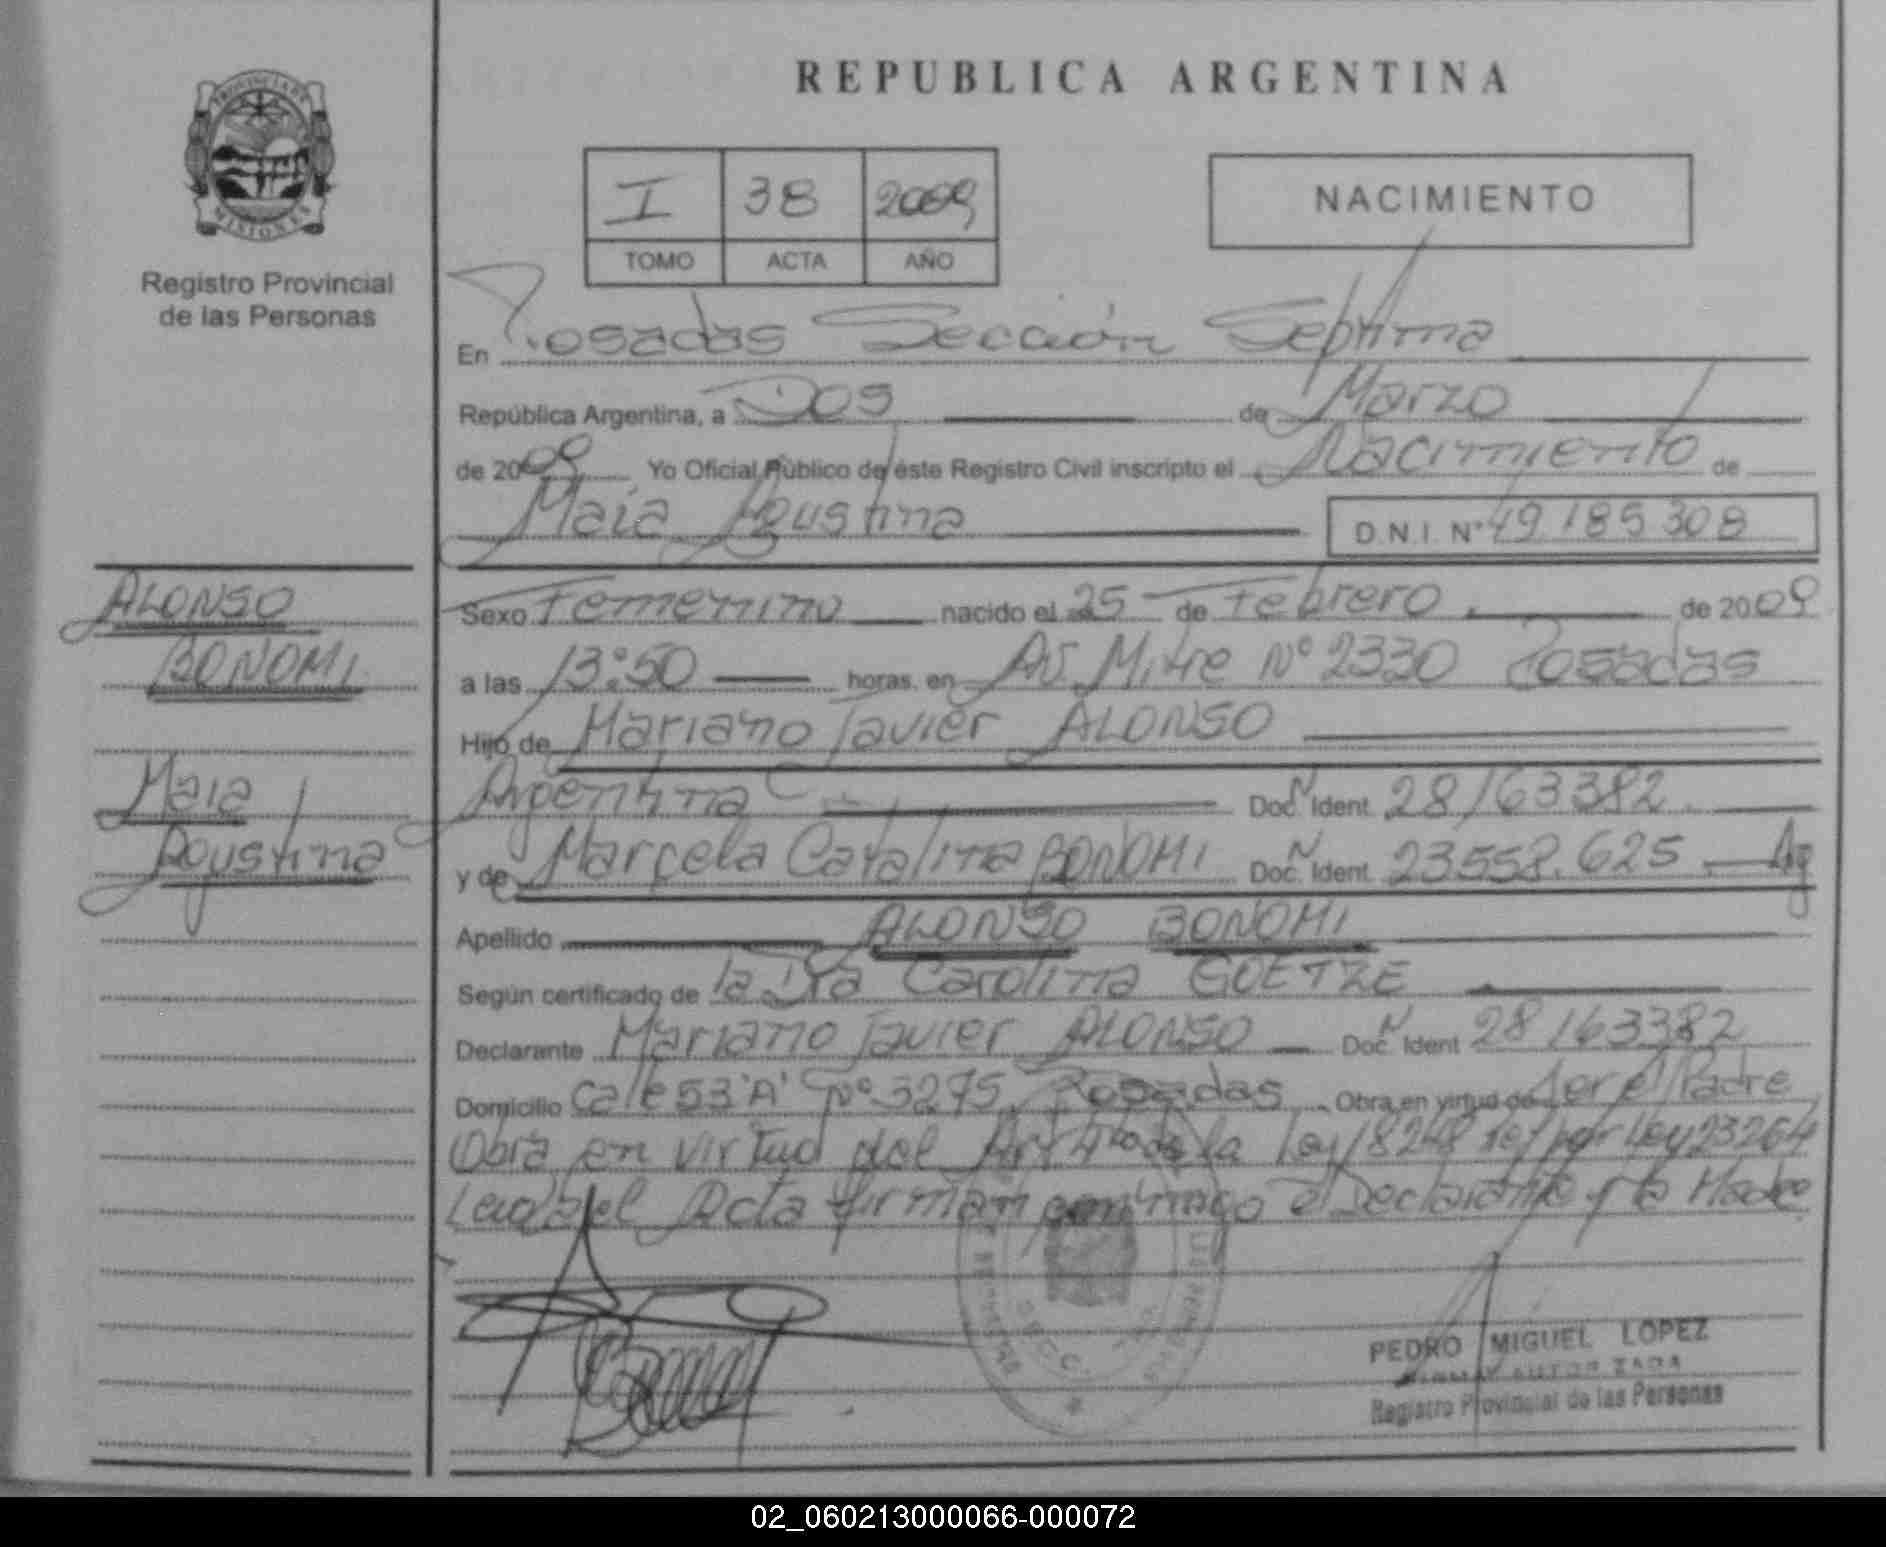 REPUBLICA ARGENTINA
PROVINCIA DE
MISIONES
Registro Provincial
de las Personas
I 38 2009
TOMO ACTA AÑO
NACIMIENTO
En Posadas Sección Septima
República Argentina, a Dos de Marzo
de 2009 Yo Oficial Público de éste Registro Civil inscripto el Nacimiento de
Maia Agustina D.N.I. N° 49.185.308
ALONSO
BONOMI
Maia
Agustina
Sexo Femenino nacido el 25 de Febrero de 2009
a las 13:50 horas, en Av. Mitre N° 2330 Posadas
Hijo de Mariano Javier ALONSO
Argentina Doc. N Ident. 28163382
y de Marcela Catalina BONOMI Doc. N Ident. 23.558.625 Arg
Apellido ALONSO BONOMI
Según certificado de la Dra Carolina GOETZE
Declarante Mariano Javier ALONSO Doc. N Ident 28163382
Domicilio Calle 53 "A" N° 3275 Posadas Obra en virtud de ser el Padre
Obra en virtud del Art 4° de la Ley 18248 ref por Ley 23264
Leida el Acta firman conmigo el Declarante y la Madre
PEDRO MIGUEL LOPEZ
FIRMA AUTORIZADA
Registro Provincial de las Personas
02_060213000066-000072